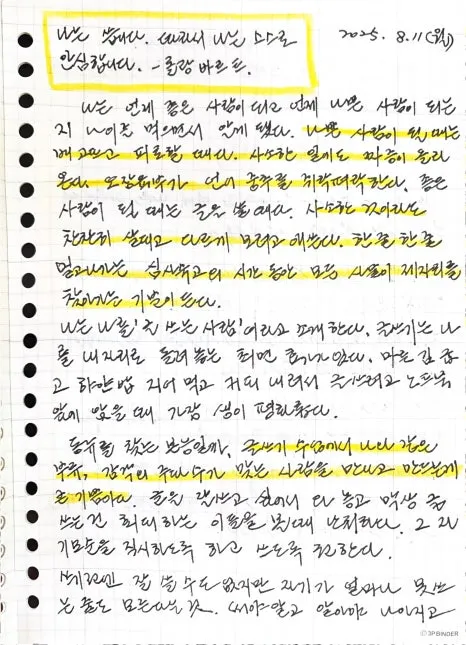 나는 씁니다. 따라서 나는 스스로
2025. 8. 11 (월)
안심합니다. - 롤랑 바르트.
나는 언제 좋은 사람이 되고 언제 나쁜 사람이 되는
지 나이를 먹으면서 알게 됐다. 나쁜 사람이 될 때는
배고프고 피로할 때다. 사소한 일에도 짜증이 올라
온다. 오장육부가 언어 중추를 쥐락펴락한다. 좋은
사람이 될 때는 글을 쓸 때다. 사소한 것이라도
찬찬히 살피고 다르게 보려고 애쓴다. 한 줄 한 줄
밀고나가는 심사숙고의 시간 동안 모든 사물이 제자리를
찾아가는 기분이 든다.
나는 나를 '글 쓰는 사람'이라고 소개한다. 글쓰기는 나
를 내 자리로 돌려 놓는 최면 효과가 있다. 마른 김 굽
고 하얀 밥 지어 먹고 커피 내려서 글 쓰려고 노트북
앞에 앉을 때 가장 생이 평화롭다.
동류를 찾는 본능일까. 글쓰기 수업에서 나와 같은
부류, 감각의 주파수가 맞는 사람을 만나고 만드는게
큰 기쁨이다. 글을 잘 쓰고 싶어서 다 놓고 막상 글
쓰는 건 회피하는 이들을 볼 때 난처하다. 그 자
기모순을 직시하도록 하고 쓰도록 권한다.
쓰기 전엔 잘 쓸 수도 없지만 자기가 얼마나 못 쓰
는 줄도 모른다는 것. 써야 알고 알아야 나아지고
© 3P BINDER